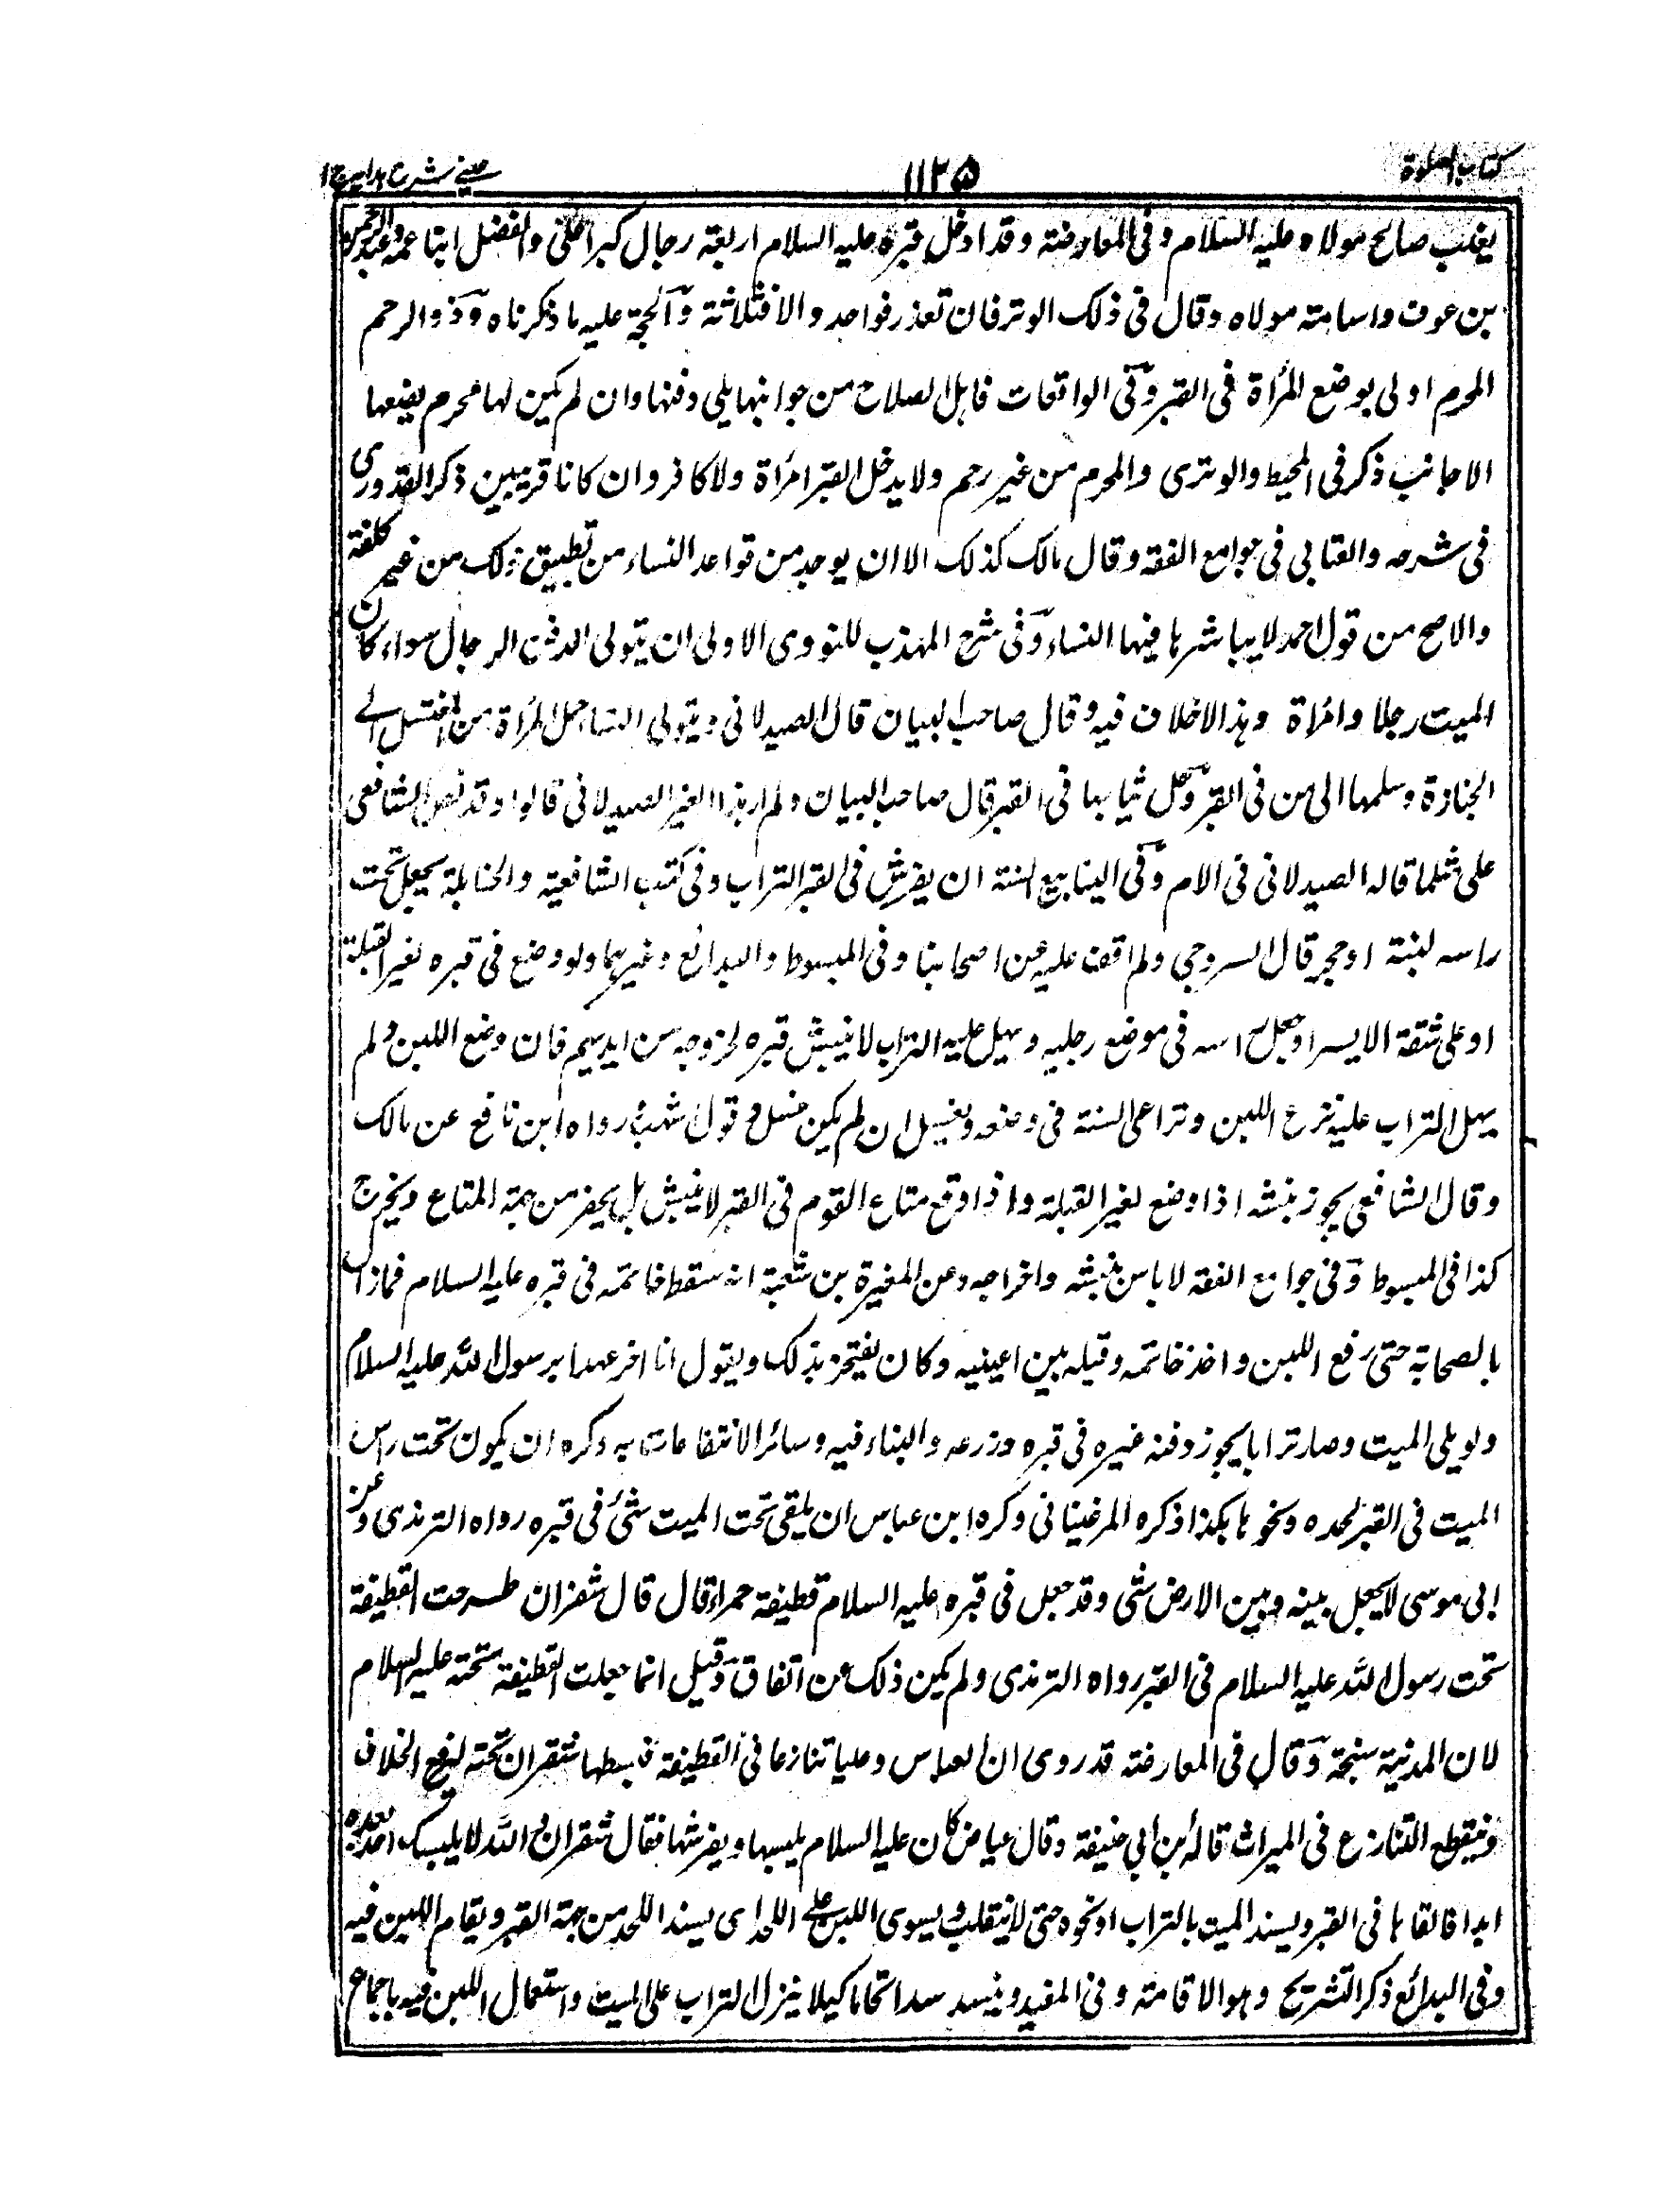 كتاب الصلوة
١١٢٥
عيني شرح هدايه ج ١
يغلب صالح مولاه عليه السلام وفى المعارضة وقد ادخل قبره عليه السلام اربعة رجال كبرا على والفضل ابنا عمه وعبد الرحمن
بن عوف واسامته مولاه وقال فى ذلك الوتر فان تعذر فواحد والا فثلاثة والحجة عليه ما ذكرناه وذو الرحم
المحرم اولى بوضع المرأة فى القبر وفى الواقعات فاهل الصلاح من جوانبها يلى دفنها وان لم يكن لها محرم يضعها
الاجانب ذكر فى المحيط والوترى والمحرم من غير رحم ولا يدخل القبر امرأة ولا كافر وان كانا قريبين ذكر القدورى
فى شرحه والعتابى فى جوامع الفقه وقال مالك كذلك الا ان يوجد من قواعد النساء من تطبيق ذلك من غير كلفة
والاصح من قول احمد لا يباشرها فيها النساء وفى شرح المهذب للنووى الاولى ان يتولى الدفن الرجال سواء كان
الميت رجلا وامرأة وهذا لاخلاف فيه وقال صاحب البيان قال الصيدلانى ويتولى النساء حمل المرأة من المغتسل الے
الجنازة وسلمها الى من فى القبر وحل ثيابها فى القبر قال صاحب البيان ولم ار هذا لغير الصيدلانى قالوا وقد نص الشافعى
على مثلما قاله الصيدلانى فى الام وفى الينابيع السنة ان يفرش فى القبر التراب وفى كتب الشافعية والحنابلة يجعل تحت
راسه لبنة او حجر قال السروجى ولم اقف عليه عن اصحابنا وفى المبسوط والبدائع وغيرهما ولو وضع فى قبره لغير القبلة
او على شقة الايسر او جعل راسه فى موضع رجليه وهيل عليه التراب لا ينبش قبره لخروجه من ايديهم فان وضع اللبن ولم
يهل التراب عليه نزع اللبن وتراعى السنة فى وضعه ويغسل ان لم يكن غسل وقول شهب رواه ابن نافع عن مالك
وقال الشافعى يجوز نبشه اذا وضع لغير القبلة واذا وقع متاع القوم فى القبر لا ينبش بل يحفر من جهة المتاع ويخرج
كذا فى المبسوط وفى جوامع الفقه لا باس بنبشه واخراجه وعن المغيرة بن شعبة انه سقط خاتمه فى قبره عليه السلام فما زال
بالصحابة حتى رفع اللبن واخذ خاتمه وقبله بين اعينيه وكان يفتخر بذلك ويقول انا اخر عهدا برسول الله عليه السلام
ولو بلى الميت وصار ترابا يجوز دفنه غيره فى قبره وزرعه والبناء فيه وسائر الانتفاعات به وكره ان يكون تحت راس
الميت فى القبر لحده ونحوها هكذا ذكره المرغينانى وكره ابن عباس ان يلقى تحت الميت شئ فى قبره رواه الترمذى وعن
ابى موسى لا يجعل بينه وبين الارض شى وقد جعل فى قبره عليه السلام قطيفة حمراء قال قال شقران طرحت القطيفة
تحت رسول الله عليه السلام فى القبر رواه الترمذى ولم يكن ذلك عن اتفاق وقيل انما جعلت القطيفة تحته عليه السلام
لان المدنية سبخة وقال فى المعارضة قد روى ان العباس وعليا تنازعا فى القطيفة فبسطها شقران تحته ليرفع الخلاف
وينقطع التنازع فى الميراث قاله ابن ابى خيفة وقال عياض كان عليه السلام يلبسها ويفرشها فقال شقران والله لا يلبسك احد بعده
ابدا فالقاها فى القبر ويسند الميت بالتراب او نحوه حتى لا ينقلب ويسوى اللبن على اللحد اى يسند اللحد من جهة القبر ويقام اللبن فيه
وفى البدائع ذكر التشريح وهو الاقامة وفى المفيد ويسد سد التحاما كيلا ينزل التراب على الميت واستعمال اللبن فيه باجماع